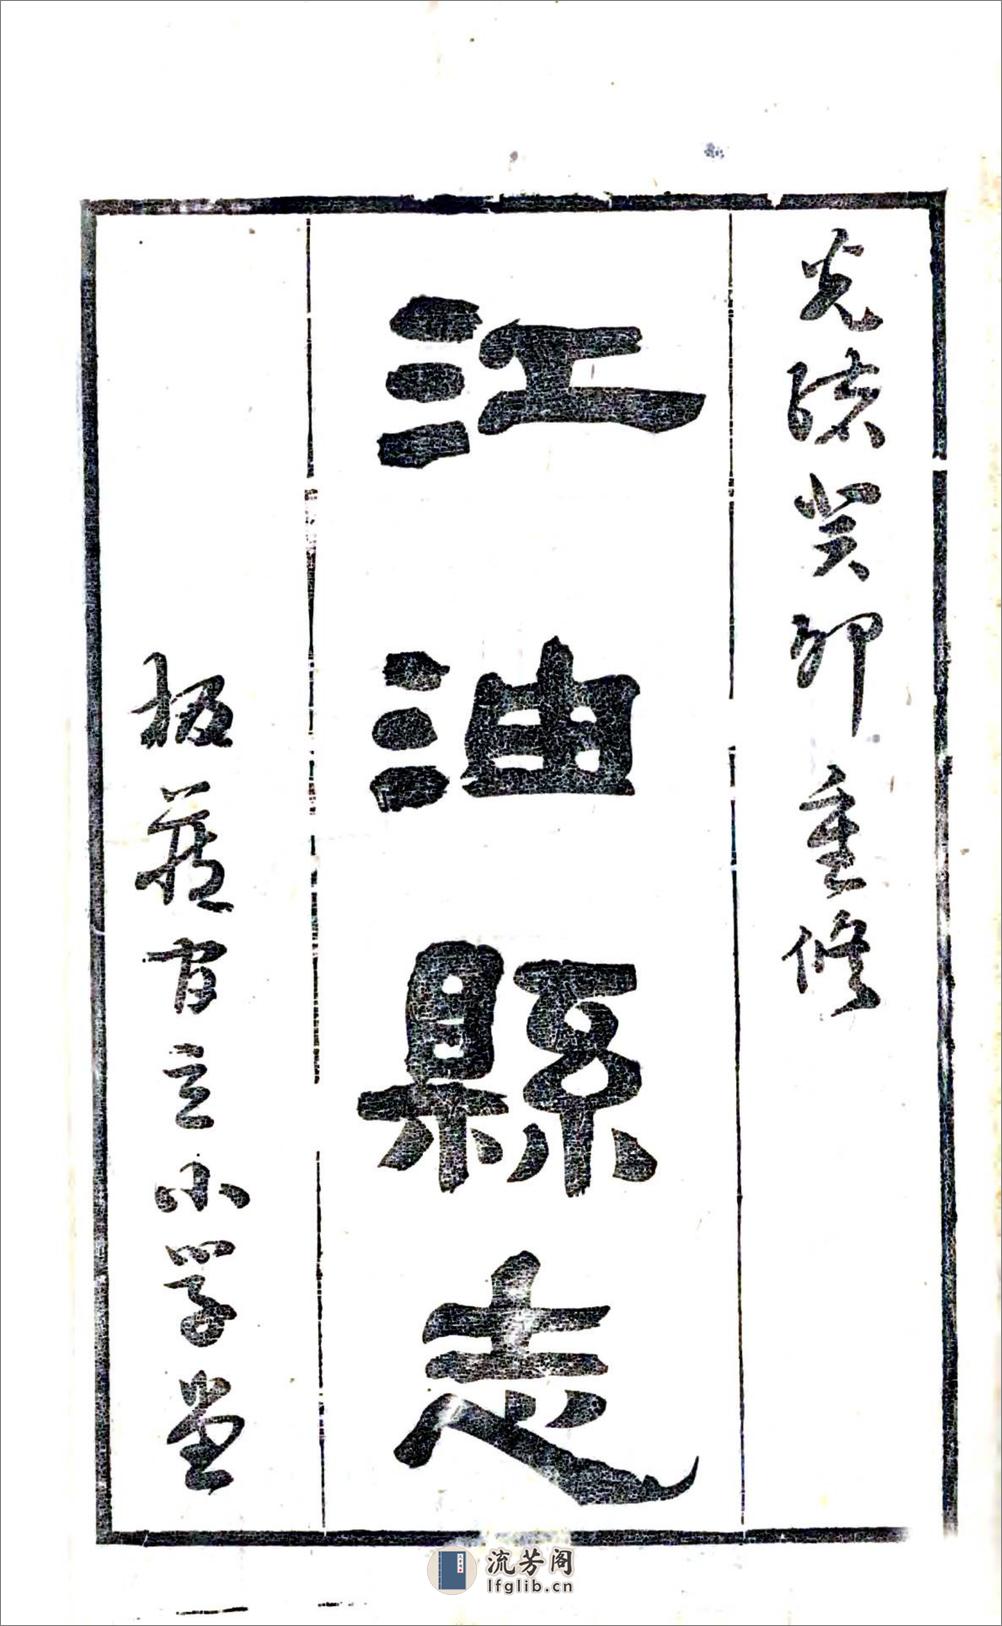 光緒癸卯重修
江油縣志
板藏官立小学堂
流芳阁
lfglib.cn